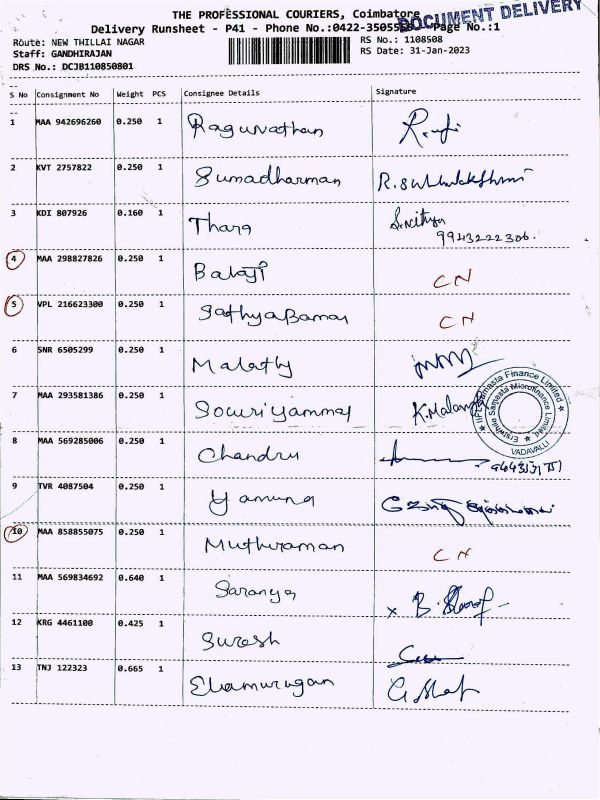 THE PROFESSIONAL COURIERS, Coimbatore
DOCUMENT DELIVERY
Delivery Runsheet - P41 - Phone No.:0422-35055 Page No.:1
Route: NEW THILLAI NAGAR RS No.: 1108508
Staff: GANDHIRAJAN RS Date: 31-Jan-2023
DRS No.: DCJB110850801
S No Consignment No Weight PCS Consignee Details Signature
1 MAA 942696260 0.250 1 Raguvathan
2 KVT 2757822 0.250 1 Sumadharman
3 KDI 807926 0.160 1 Thara S.nithya
9943222306.
4 MAA 298827826 0.250 1 Balaji CN
5 VPL 216623300 0.250 1 SathyaBama CN
6 SNR 6505299 0.250 1 Malathy
7 MAA 293581386 0.250 1 Souriyammal K.Malar
IIFL Samasta Finance Limited
Erstwhile Samasta Microfinance Limited
VADAVALLI
8 MAA 569285006 0.250 1 Chandru
9 TVR 4087504 0.250 1 Yamuna
10 MAA 858855075 0.250 1 Muthuraman CN
11 MAA 569834692 0.640 1 Saranya
12 KRG 4461100 0.425 1 Suresh
13 TNJ 122323 0.665 1 Elamurugan